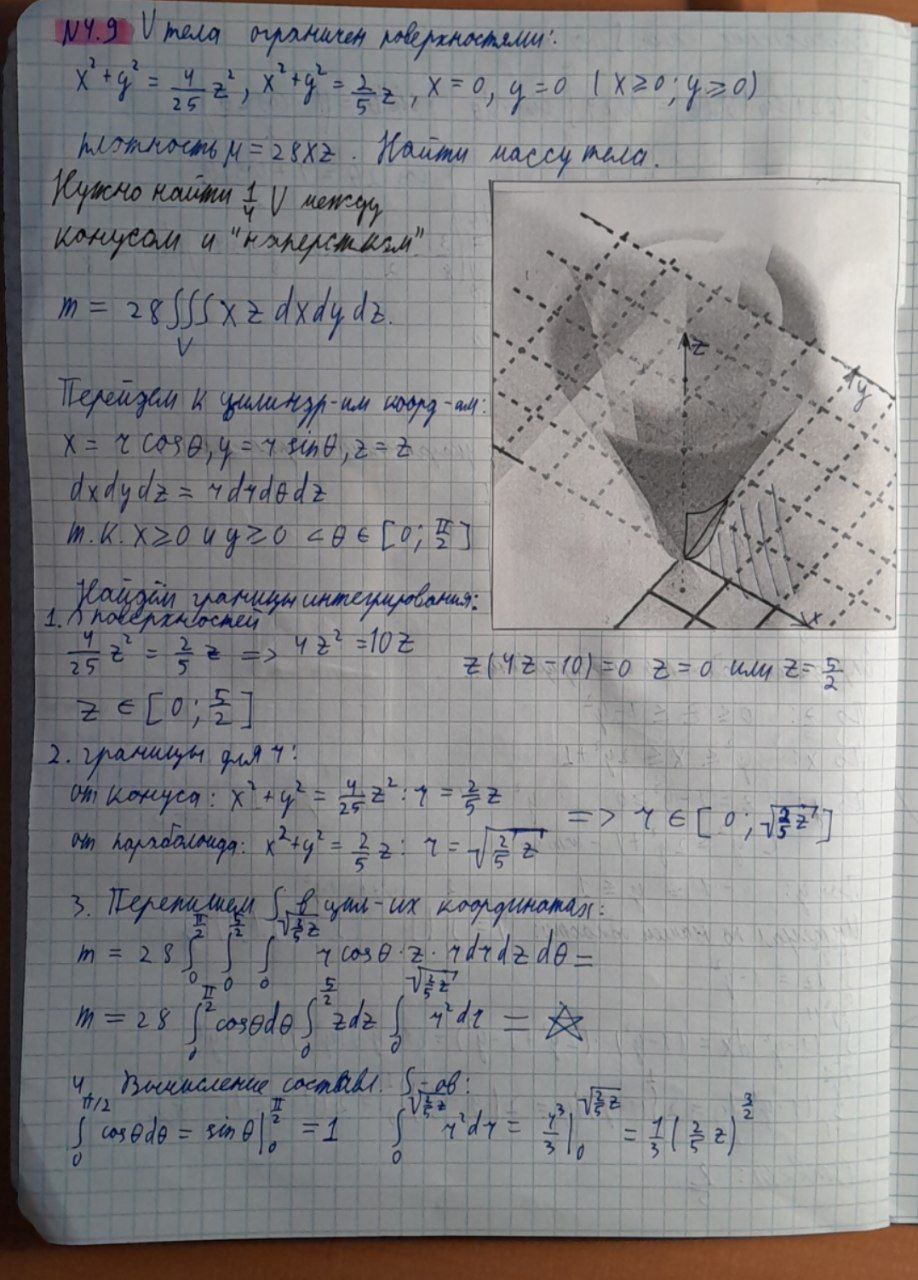 N4.9 V тела ограничен поверхностями:
x² + y² = 4/25 z², x² + y² = 2/5 z, x = 0, y = 0 (x ≥ 0; y ≥ 0)
плотность μ = 28xz. Найти массу тела.
Нужно найти 1/4 V между
конусом и "наперстком"
m = 28 ∭ x z dxdydz.
V
Перейдем к цилиндр-им коорд-ам:
x = r cosθ, y = r sinθ, z = z
dxdydz = r dr dθ dz
т.к. x ≥ 0 и y ≥ 0 < θ ∈ [0; π/2]
z
y
x
Найдём границы интегрирования:
1. поверхностей
4/25 z² = 2/5 z => 4z² = 10z
z(4z-10) = 0 z = 0 или z = 5/2
z ∈ [0; 5/2]
2. границы для r:
от конуса: x² + y² = 4/25 z² : r = 2/5 z
=> r ∈ [0; √(2/5 z)]
от параболоида: x² + y² = 2/5 z : r = √(2/5 z)
3. Перепишем ∫ в цил-их координатах:
m = 28 ∫₀^(π/2) ∫₀^(5/2) ∫₀^(√(2/5 z)) r cosθ · z · r dr dz dθ =
m = 28 ∫₀^(π/2) cosθdθ ∫₀^(5/2) zdz ∫₀^(√(2/5 z)) r² dr = ☆
4. Вычисление составл. ∫-ов:
∫₀^(π/2) cosθdθ = sinθ |₀^(π/2) = 1 ∫₀^(√(2/5 z)) r² dr = r³/3 |₀^(√(2/5 z)) = 1/3 (2/5 z)^(3/2)